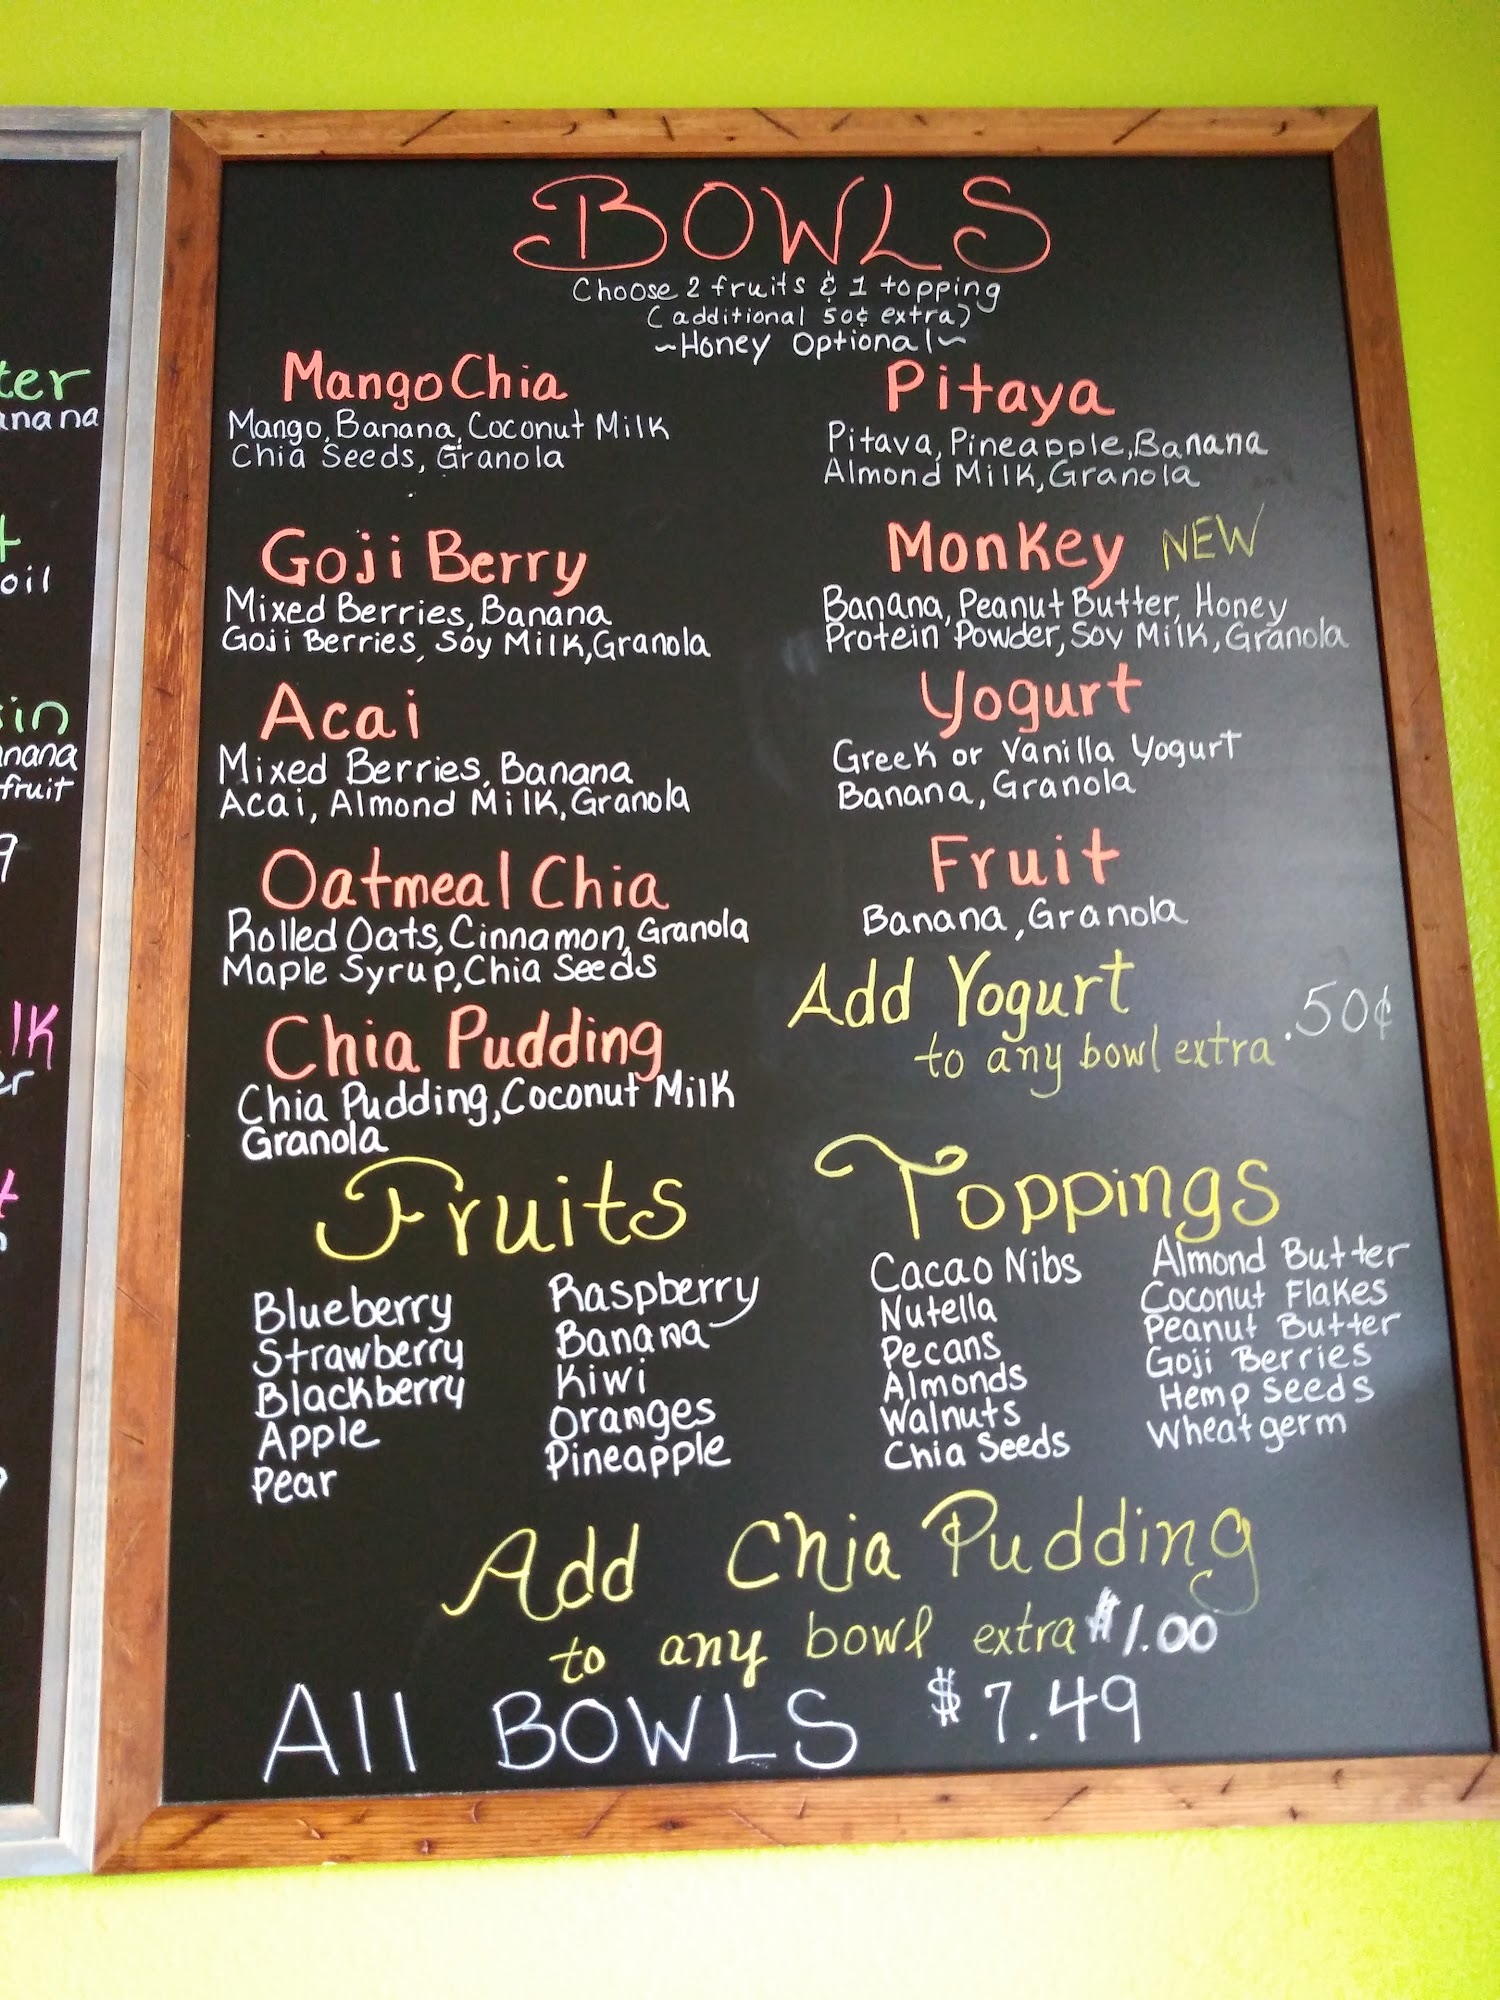 BOWLS
Choose 2 fruits & 1 topping
(additional 50¢ extra)
~Honey Optional~
Mango Chia
Mango, Banana, Coconut Milk
Chia Seeds, Granola
Goji Berry
Mixed Berries, Banana
Goji Berries, Soy Milk, Granola
Acai
Mixed Berries, Banana
Acai, Almond Milk, Granola
Oatmeal Chia
Rolled Oats, Cinnamon, Granola
Maple Syrup, Chia Seeds
Chia Pudding
Chia Pudding, Coconut Milk
Granola
Pitaya
Pitava, Pineapple, Banana
Almond Milk, Granola
Monkey NEW
Banana, Peanut Butter, Honey
Protein Powder, Soy Milk, Granola
Yogurt
Greek or Vanilla Yogurt
Banana, Granola
Fruit
Banana, Granola
Add Yogurt
to any bowl extra .50¢
Fruits
Blueberry
Strawberry
Blackberry
Apple
Pear
Raspberry
Banana
Kiwi
Oranges
Pineapple
Toppings
Cacao Nibs
Nutella
Pecans
Almonds
Walnuts
Chia Seeds
Almond Butter
Coconut Flakes
Peanut Butter
Goji Berries
Hemp Seeds
Wheatgerm
Add Chia Pudding
to any bowl extra $1.00
All BOWLS $7.49
oil
fruit